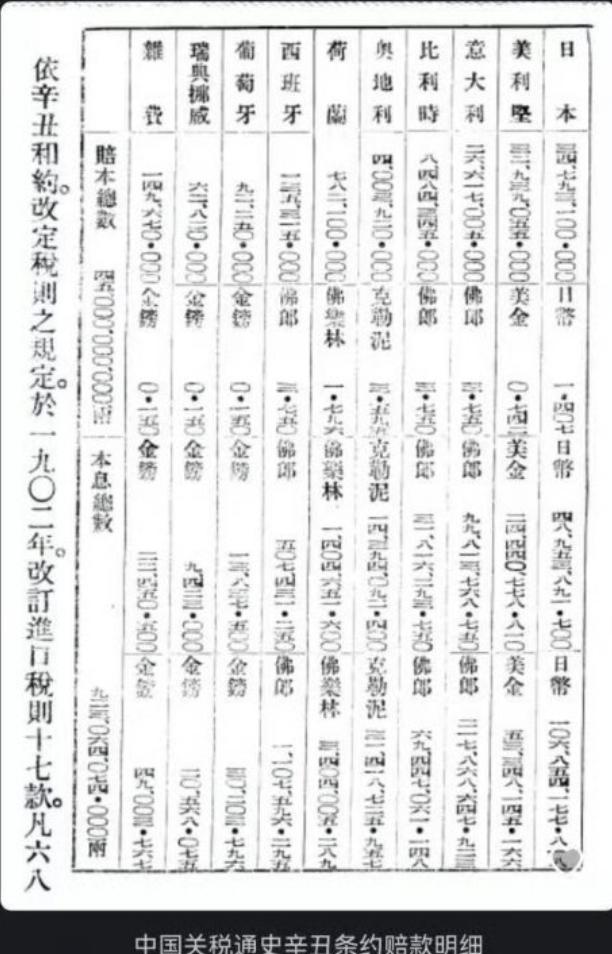 日本 三四、七九三、一〇〇・〇〇〇 日幣 一・四〇七 日幣 四八、九五三、八九一・七〇〇 日幣 一〇六、八五四、一七七・八
美利堅 三二、九三九、〇五五・〇〇〇 美金 〇・七四二 美金 二四、四四〇、七七八・八一〇 美金 五三、三四八、一四五・一六六
意大利 二六、六一七、〇〇五・〇〇〇 佛郎 三・七五〇 佛郎 九九、八一三、七六八・七五〇 佛郎 二一七、八六八、六四七・九二三
比利時 八、四八四、三四五・〇〇〇 佛郎 三・七五〇 佛郎 三一、八一六、二九三・七五〇 佛郎 六九、四四七、〇六一・一四八
奧地利 四、〇〇三、九二〇・〇〇〇 克勒泥 三・五九五 克勒泥 一四、三九四、〇九二・四〇〇 克勒泥 三一、四一八、七二五・九五七
荷蘭 七八二、一〇〇・〇〇〇 佛樂林 一・七九六 佛樂林 一、四〇四、六五一・六〇〇 佛樂林 三、四〇四、〇〇五・二八九
西班牙 一三五、三一五・〇〇〇 佛郎 三・七五〇 佛郎 五〇七、四三一・二五〇 佛郎 一、一〇七、五九六・二九五
葡萄牙 九二、二五〇・〇〇〇 金鎊 〇・一五〇 金鎊 一三、八三七・五〇〇 金鎊 三〇、二〇三・七九六
瑞典挪威 六二、八二〇・〇〇〇 金鎊 〇・一五〇 金鎊 九、四二三・〇〇〇 金鎊 二〇、五六八・〇七五
雜費 一四九、六七〇・〇〇〇 金鎊 〇・一五〇 金鎊 二二、四五〇・五〇〇 金鎊 四九、〇〇三・七六七
賠本總數 四五〇、〇〇〇、〇〇〇・〇〇〇兩 本息總數 九二三、〇六四、〇七四・〇〇〇兩
依辛丑和約。改定稅則之規定。於一九〇二年。改訂進口稅則十七款。凡六八
中国关税通史辛丑条约赔款明细